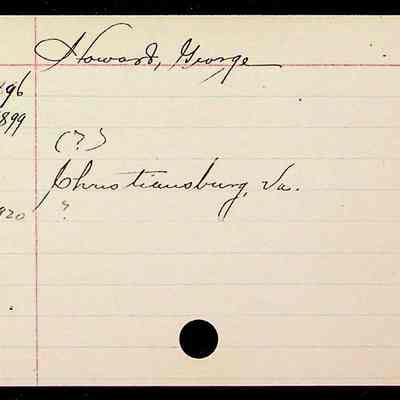 Howard, George
96
899
(?)
Christiansburg, Va.
920 ?